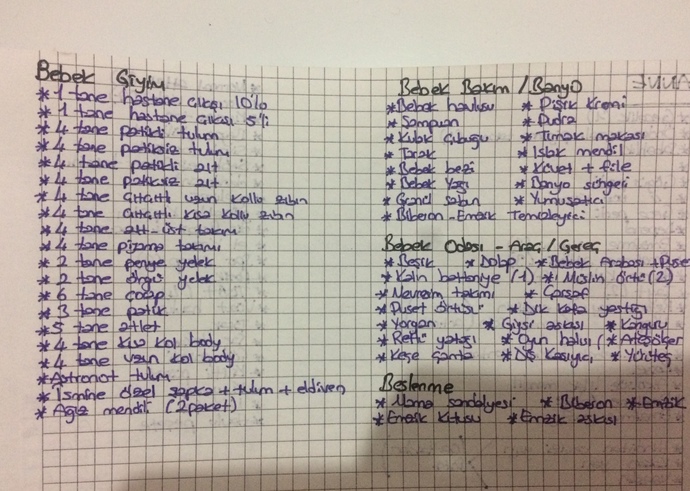 Bebek Giyim
* 1 tane hastane çıkışı 10'lu
* 1 tane hastane çıkışı 5'li
* 4 tane patikli tulum
* 4 tane patiksiz tulum
* 4 tane patikli alt
* 4 tane patiksiz alt
* 4 tane çıtçıtlı uzun kollu zıbın
* 4 tane çıtçıtlı kısa kollu zıbın
* 4 tane alt-üst takım
* 4 tane pijama takımı
* 2 tane penye yelek
* 2 tane örgü yelek
* 6 tane çorap
* 3 tane patik
* 5 tane atlet
* 4 tane kısa kol body
* 4 tane uzun kol body
* Astronot tulum
* İsmine özel şapka + tulum + eldiven
* Ağız mendili (2 paket)
Bebek Bakım / Banyo
* Bebek havlusu * Pişik Kremi
* Şampuan * Pudra
* Kulak Çubuğu * Tırnak makası
* Tarak * Islak mendil
* Bebek bezi * Küvet + file
* Bebek Yağı * Banyo süngeri
* Granül sabun * Yumuşatıcı
* Biberon - Emzik Temizleyici
Bebek Odası - Araç / Gereç
* Beşik * Dolap * Bebek Arabası + Puset
* Kalın battaniye (1) * Müslin örtü (2)
* Nevresim takımı * Çarşaf
* Puset örtüsü * Dik kafa yastığı
* Yorgan * Giysi askısı * Kanguru
* Reflü yatağı * Oyun halısı * Ateşölçer
* Keçe çanta * Diş Kaşıyıcı * Yürüteç
Beslenme
* Mama sandalyesi * Biberon * Emzik
* Emzik kutusu * Emzik askısı